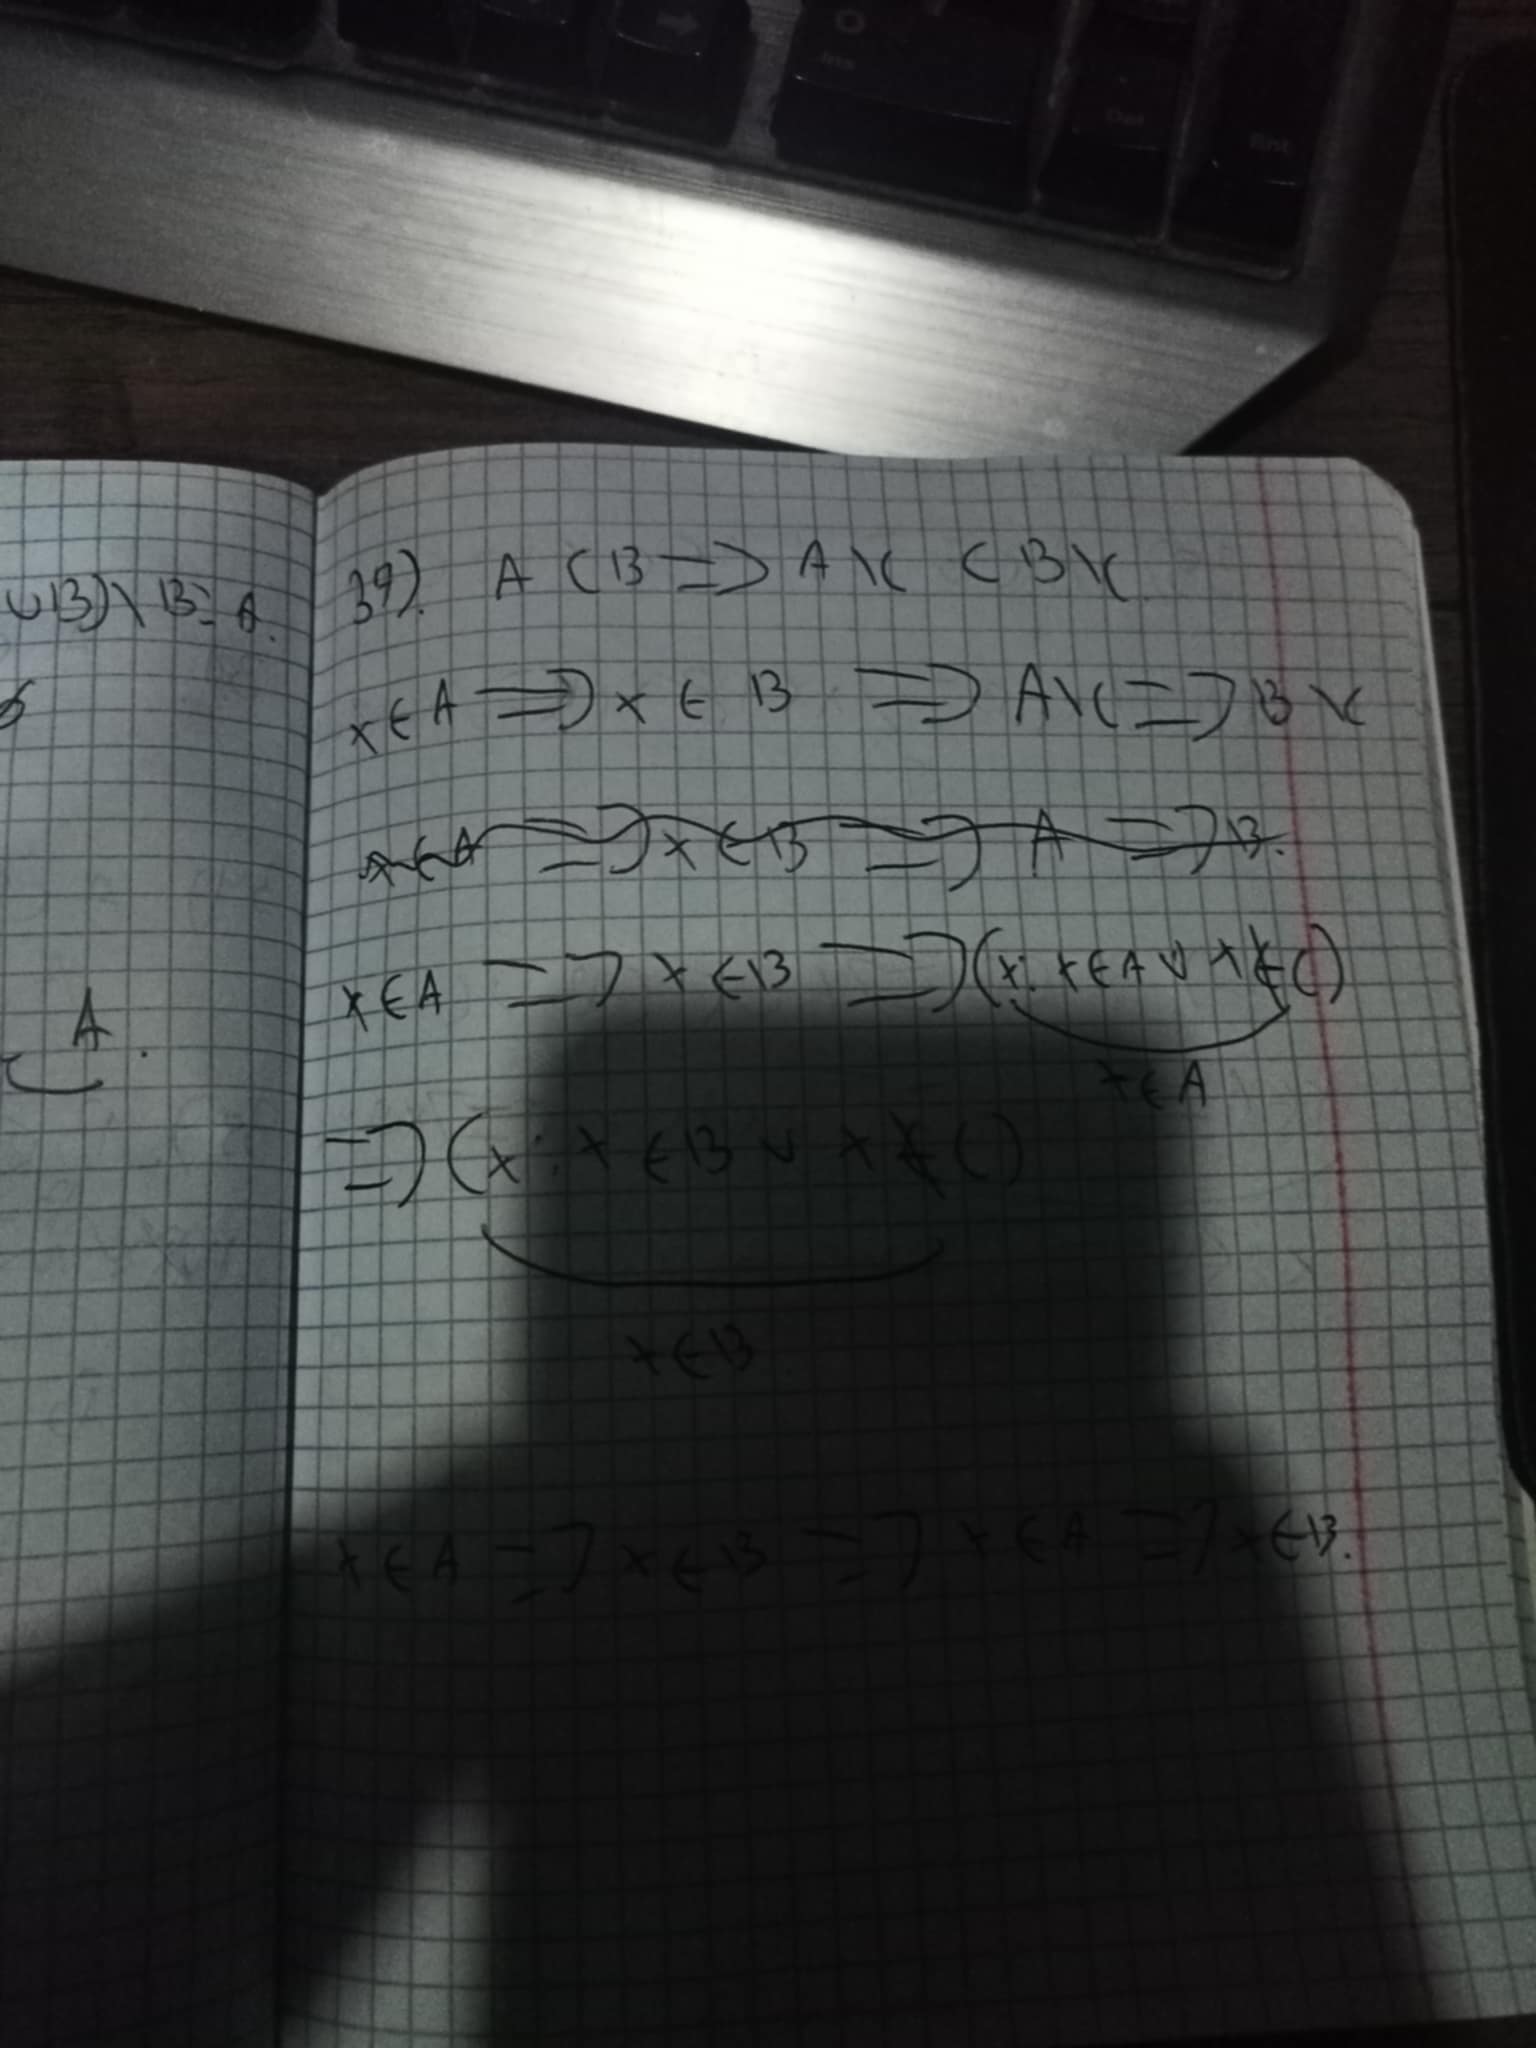 ∪B)\B= A.
A.
39). A ⊂ B => A\C ⊂ B\C.
x∈A => x ∈ B => A\C => B\C
x∈A => x∈B => A => B.
x∈A => x∈B => (x: x∈A ∨ x∉C)
x∈A
=> (x: x ∈ B ∨ x ∉ C)
x∈B
x∈A => x∈B => x∈A => x∈B.